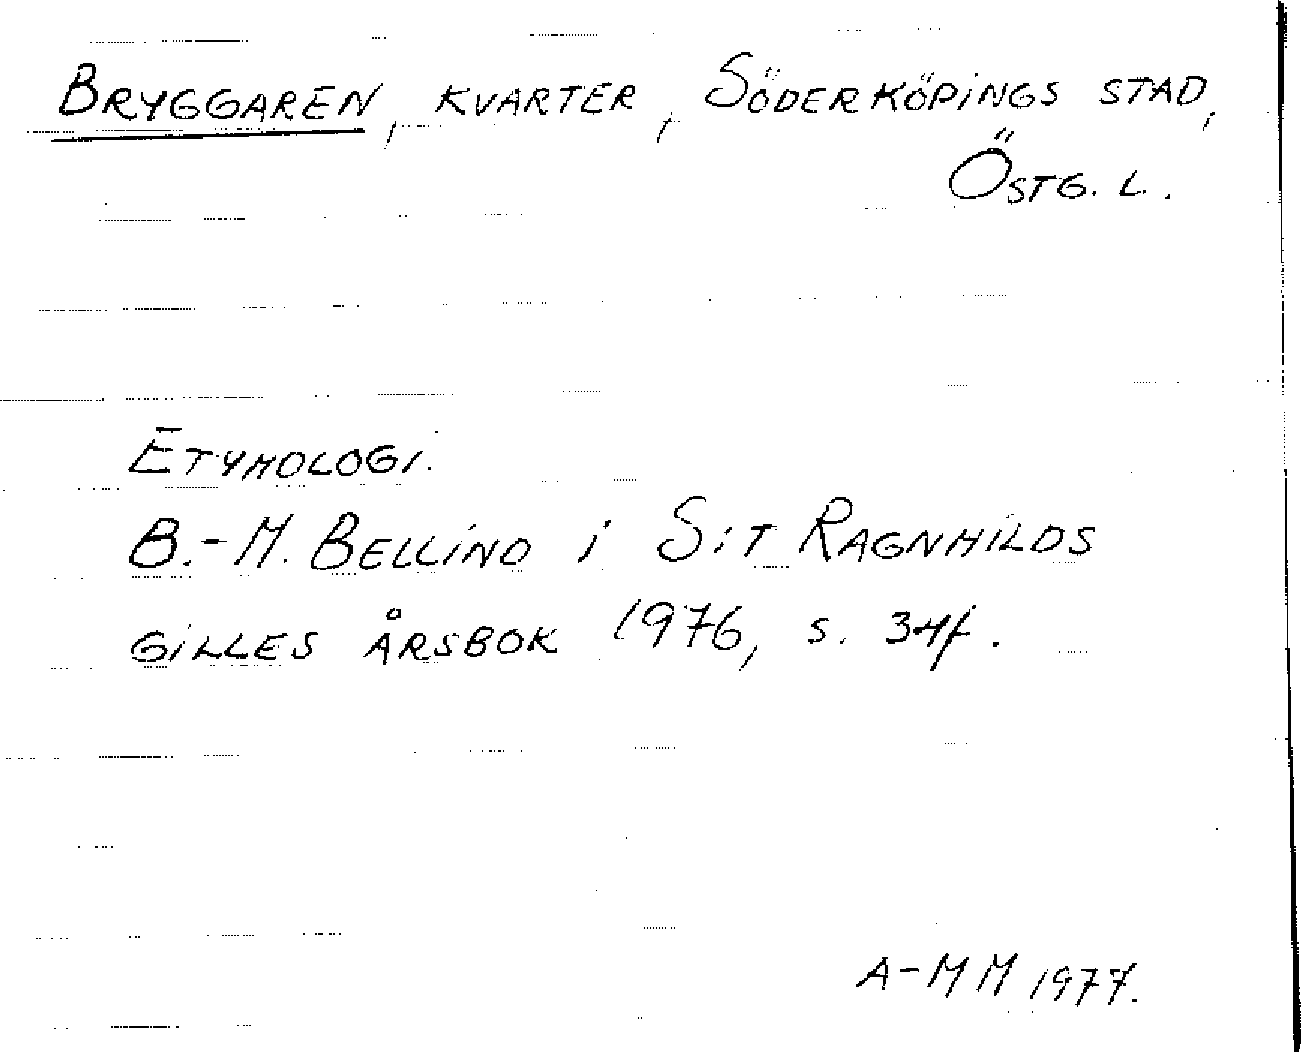 BRYGGAREN, KVARTER, SÖDERKÖPINGS STAD,
ÖSTG. L.
ETYMOLOGI.
B.-M. BELLIND i S:T RAGNHILDS
GILLES ÅRSBOK 1976, s. 34f.
A-MM 1977.